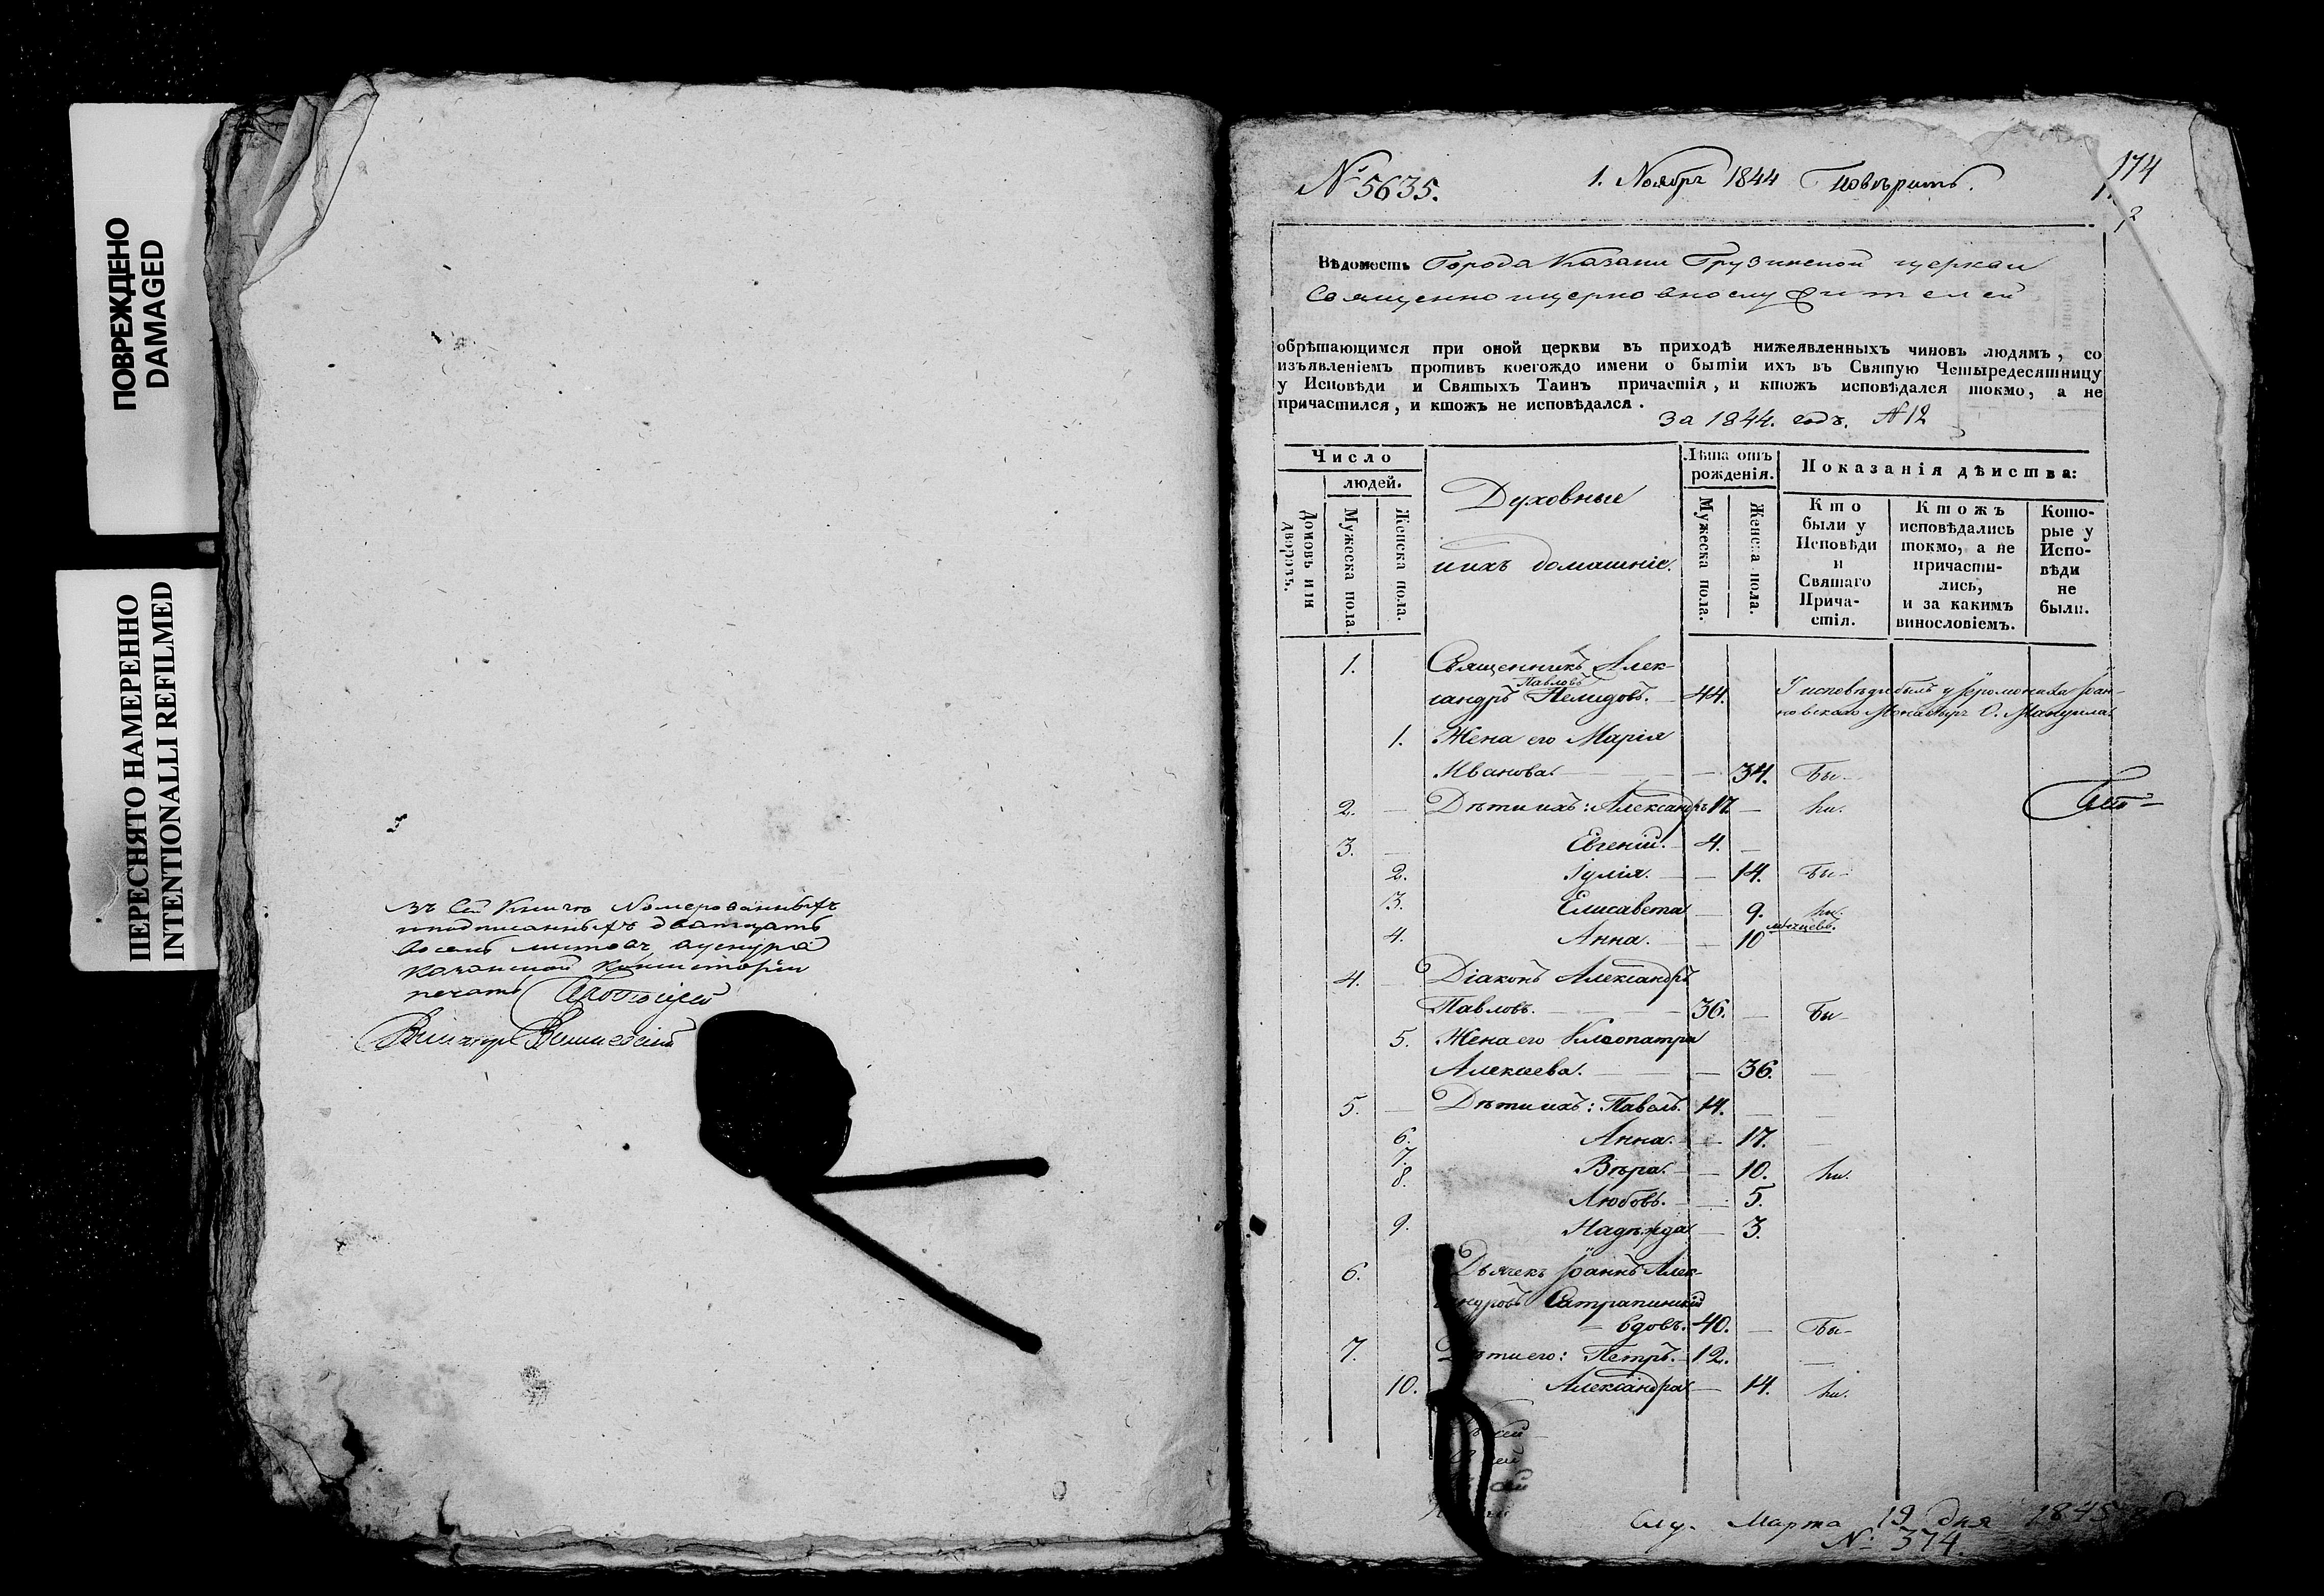 ПОВРЕЖДЕНО
DAMAGED
ПЕРЕСНЯТО НАМЕРЕННО
INTENTIONALLI REFILMED
въ сей книге номерованныхъ
и подписанныхъ дватцать
восемь листовъ
казанской консисторіи
печать Протоіерей
Викторъ Вишневскій
№ 5635.
1. Ноябрѧ 1844 Повѣрить.
174
Вѣдомость Города Казани Грузинской церкви
Священноицерковнослужителей
обрѣтающимся при оной церкви въ приходѣ нижеявленныхъ чиновъ людямъ, со
изъявленіемъ противъ коегождо имени о бытіи ихъ въ Святую Четыредесятницу
у Исповѣди и Святыхъ Таинъ причастія, и ктожъ исповѣдался токмо, а не
причастился, и ктожъ не исповѣдался.
За 1844. годъ. № 12
Число
людей.
Домовъ или дворовъ.
Мужеска пола.
Женска пола.
Духовные
и ихъ домашніе.
Лѣта отъ рожденія.
Мужеска пола.
Женска пола.
Показанія дѣиства:
Кто были у Исповѣди и Святаго Прича-стія.
Ктожъ исповѣдались токмо, а не причасти-лись, и за какимъ винословіемъ.
Кото-рые у Испо-вѣди не были.
1. Священникъ Алек-
Павловъ
сандръ Нелидовъ. 44. У исповѣди былъ у Іеромонаха Іоан-
новскаго Монастыря О. Мануила
1. Жена его Марія
Иванова. 34. Бы-
2. Дѣти ихъ: Александръ 17. ли.
3. Евгеній. 4.
2. Іулія. 14. Бы-
3. Елисавета 9. ли.
4. Анна. 10 мѣсяцевъ.
4. Діаконъ Александръ
Павловъ. 36. Бы-
5. Жена его Клеопатра
Алексѣева. 36.
5. Дѣти ихъ: Павелъ. 14.
6. Анна. 17.
7. Вѣра. 10. ли.
8. Любовь. 5.
9. Надежда 3.
6. Дьячекъ Іоаннъ Алек-
андровъ Сатрапинскій
вдовъ. 40. Бы-
7. Дѣти его: Петръ. 12.
10. Александра 14. ли.
Слу. Марта 19 дня 1845
№ 374.